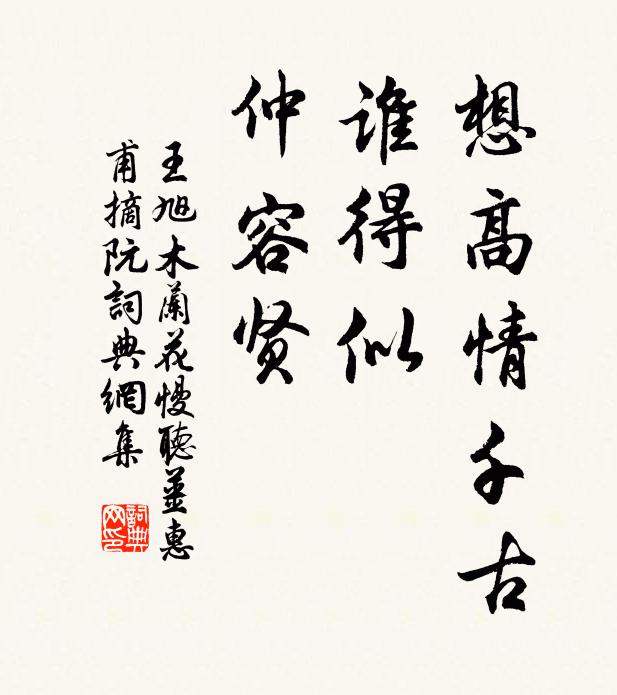 想高情千古
谁得似
仲容贤
王旭木蘭花慢聽薑惠
甫摘阮詞典網集
詞典
网印